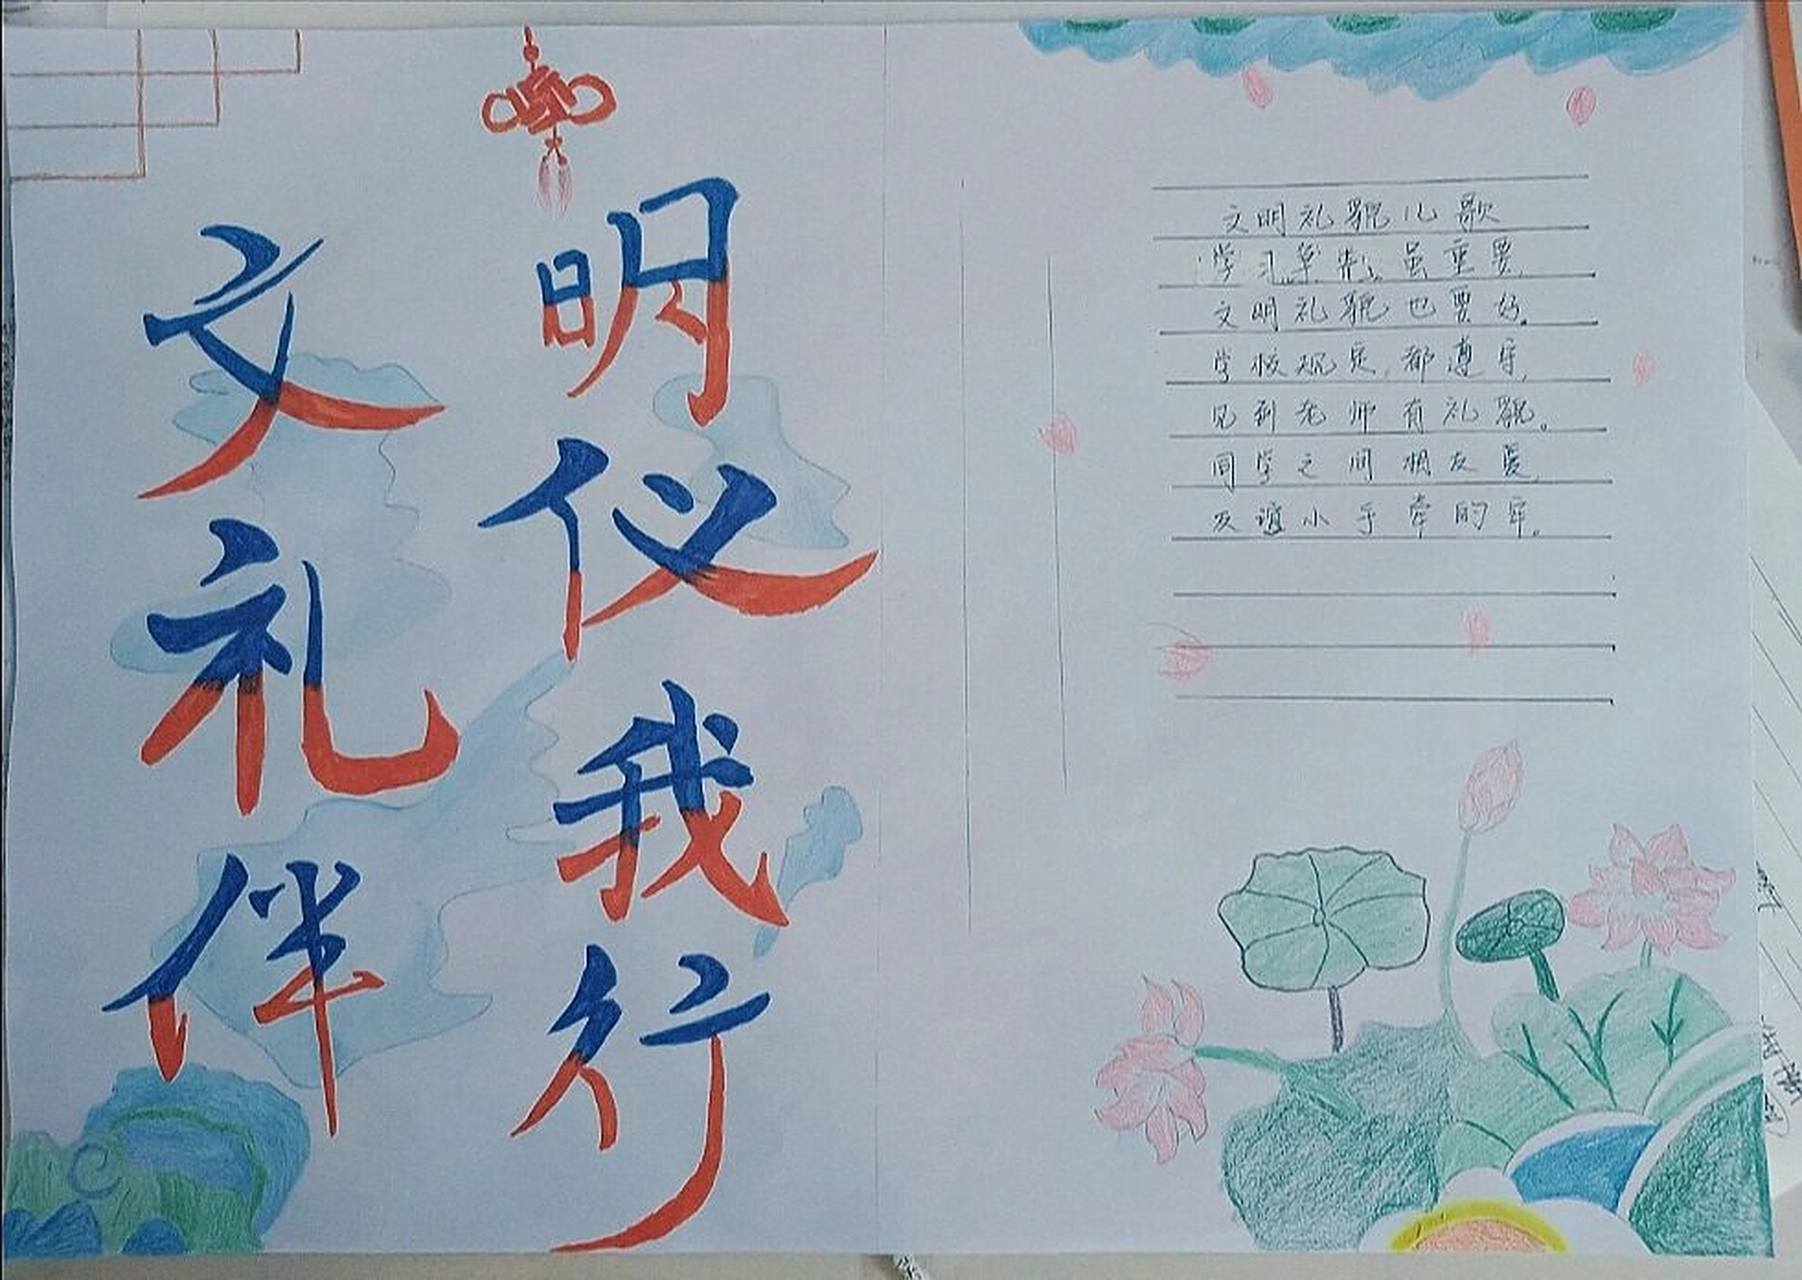 文明
礼仪
伴我
行
文明礼貌儿歌
学习虽重要
文明礼貌也要好.
学校规定,都遵守,
见到老师有礼貌。
同学之间相友爱,
友谊小手牵的牢。